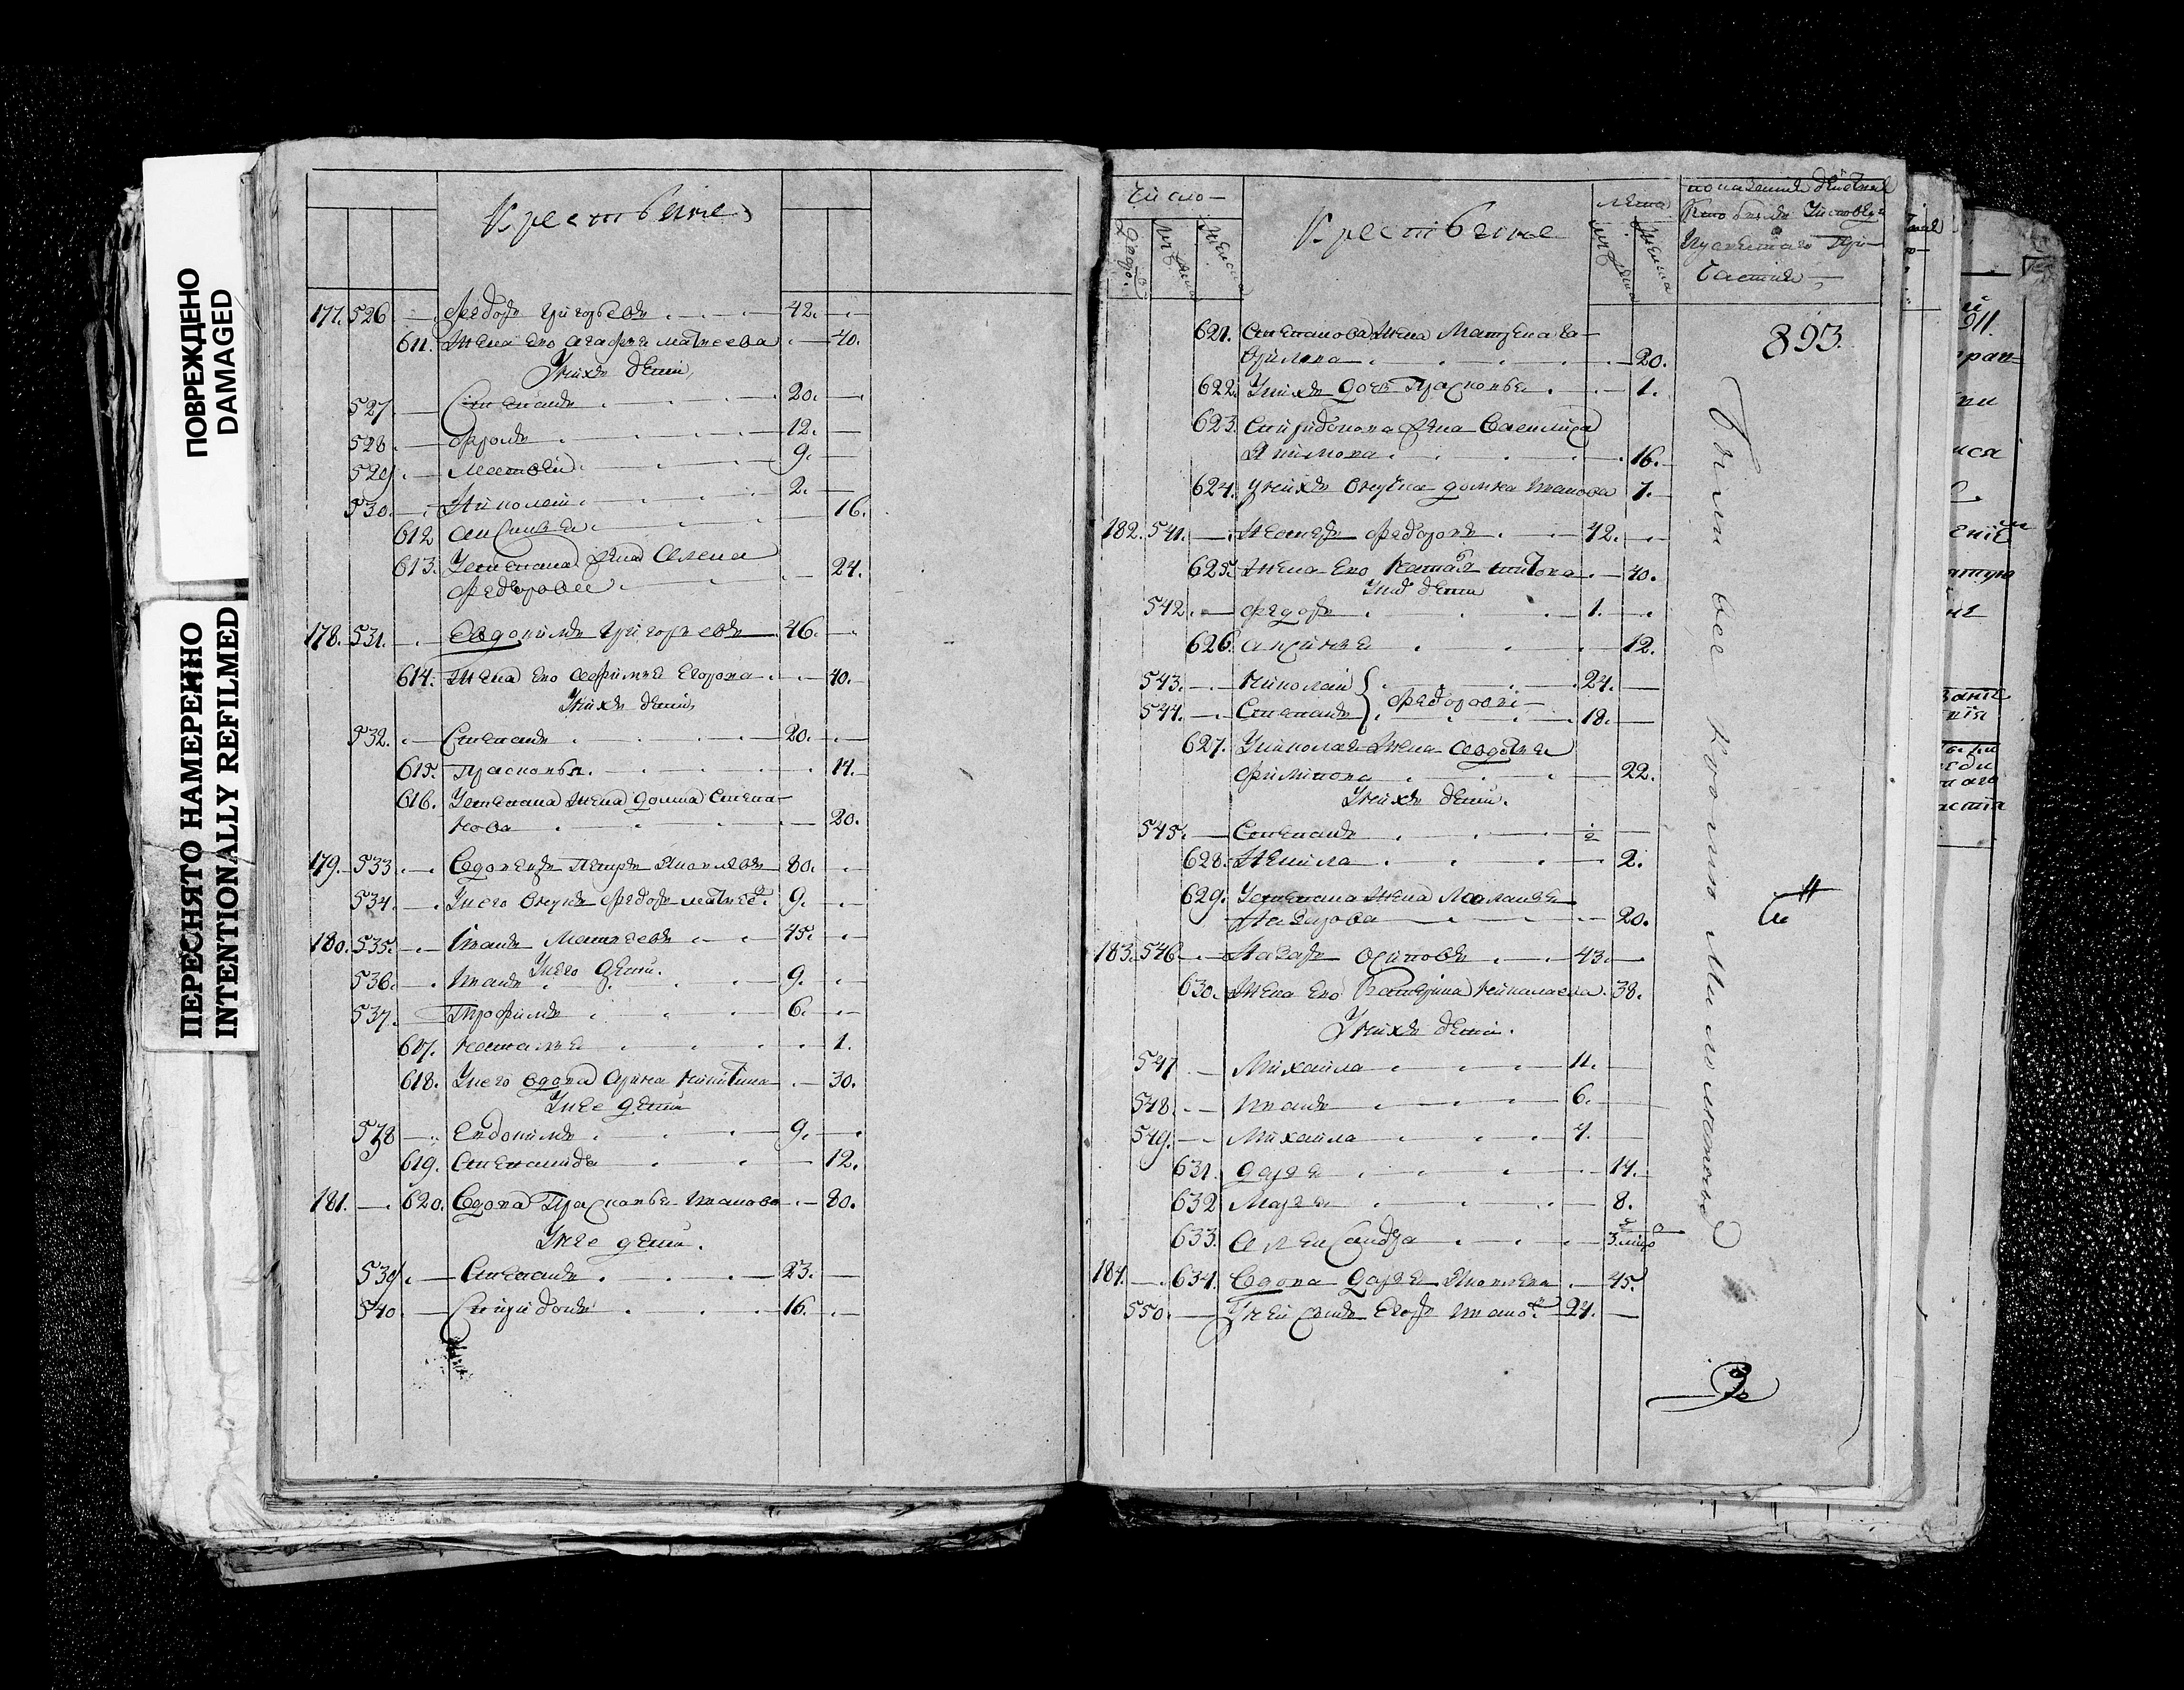 ПОВРЕЖДЕНО
DAMAGED
ПЕРЕСНЯТО НАМЕРЕННО
INTENTIONALLY REFILMED
Крестьяне
177. 526 Федоръ Григорьевъ 42.
611. Жена Его Агафья Матвеева 40.
У нихъ дети
527 Степанъ 20.
528 Фролъ 12.
529 Матвей 9.
530. Николай 2.
612 Аксинья 16.
613. У Степана жена Алена 24.
Федорова
178. 531. Евдокимъ Григорьевъ 46.
614. Жена Его Афимья Егорова 40.
У нихъ дети
532. Степанъ 20.
615. Прасковья 14.
616. У Степана жена Домна Степа-
нова 20.
179. 533 Вдовецъ Петръ Яковлевъ 80.
534. У него внукъ Федоръ Матвее. 9.
180. 535. Иванъ Матвеевъ 45.
У него дети.
536. Иванъ 9.
537. Трофимъ 6.
617. Наталья 1.
618. У него вдова Арина Никитина 30.
У нее дети
538 Евдокимъ 9.
619. Степанида 12.
181. 620. Вдова Прасковья Иванова 80.
У нее дети.
539. Степанъ 23.
540. Спиридонъ 16.
число
дворо.
Крестьяне
лета
показаніе действія
кто былъ у исповеди
и у святаго при-
частія
893.
621. Степанова жена Матрена Га-
врилова 20.
622. У нихъ дочь Прасковья 1.
623. Спиридонова жена Василиса
Якимова 16.
624. У нихъ внучка Домна Иванова 7.
182. 541. Нестеръ Федоровъ 42.
625. Жена Его Титова 40.
У нихъ дети
542. Федоръ 1.
626. Аксинья 12.
543. Николай 24.
Федоровы
544. Степанъ 18.
627. У Николая жена Авдотья
Филипова 22.
У нихъ дети.
545. Степанъ
628. 2.
629. У Степана жена Маланья
Назарова 20.
183. 546. Назаръ Осиповъ 43.
630. Жена Его Катерина Николаева 38.
У нихъ дети.
547 Михайла 11.
548. Иванъ 6.
549. Михайла 4.
631. Дарья 14.
632 Марья 8.
633. Александра 3.
184. 634. Вдова Дарья Яковлева 45.
550. У ней сынъ Егоръ Ивано. 24.
Были все кроме малолетныхъ